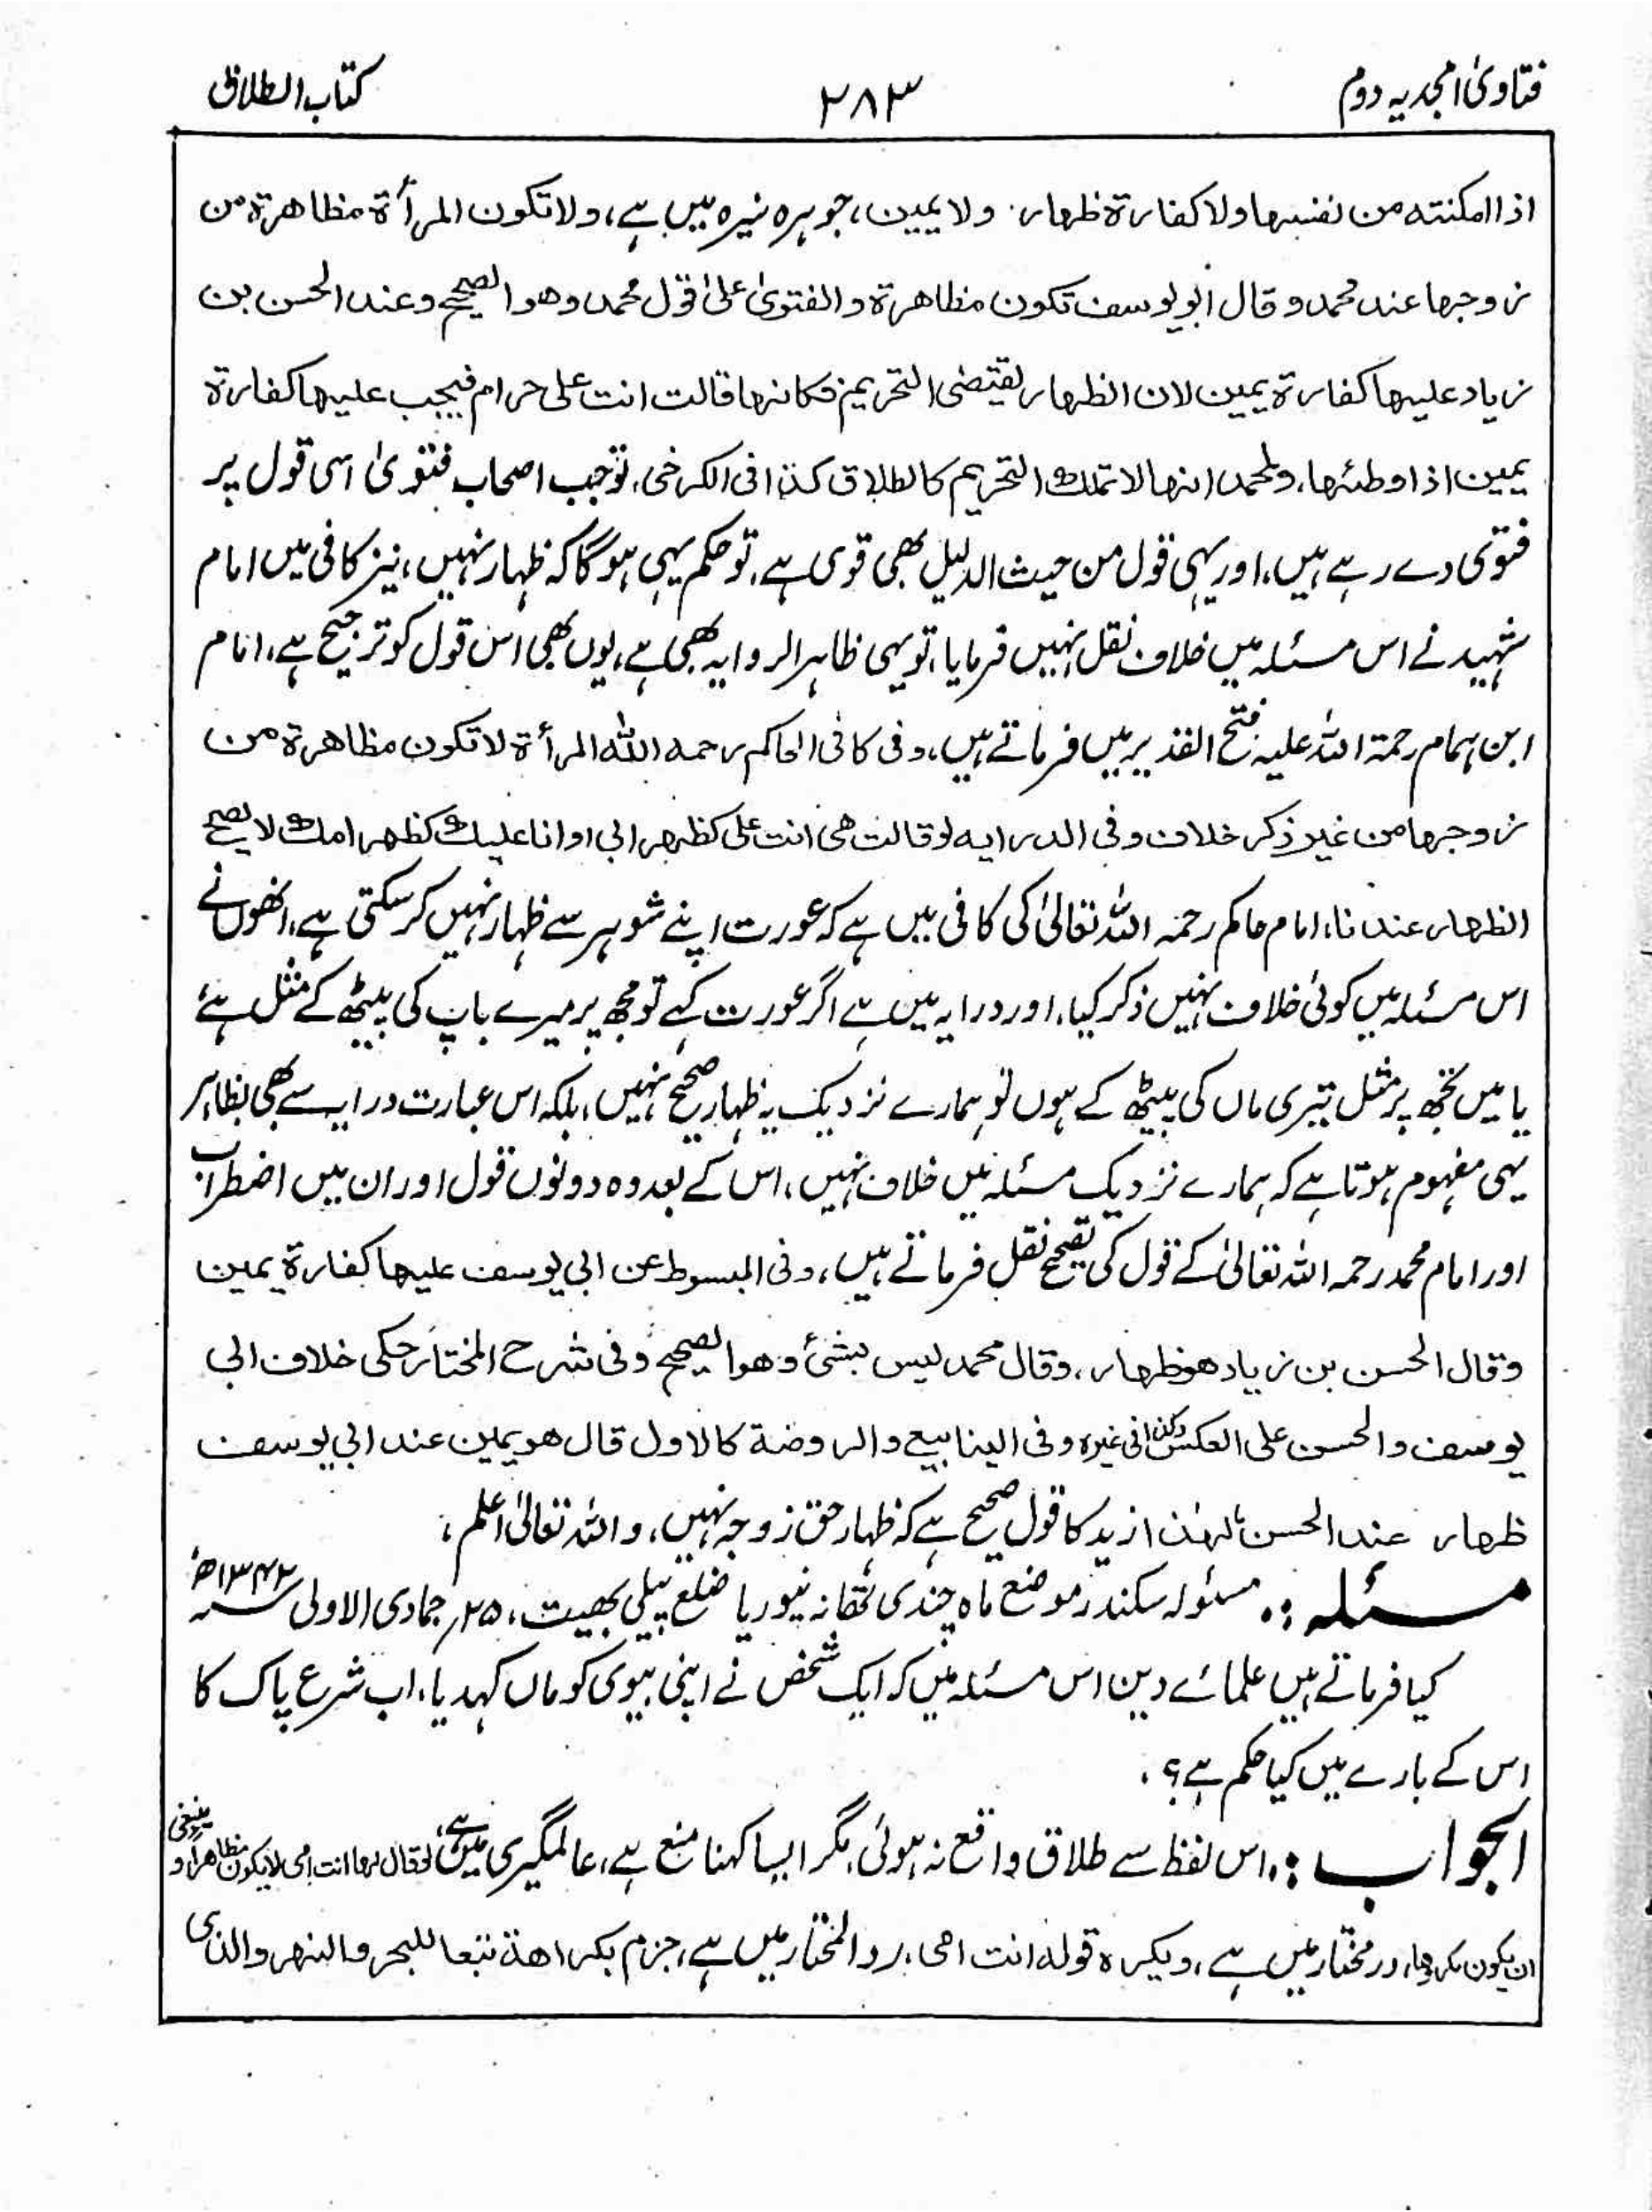 فتاویٰ امجدیہ دوم
۲۸۳
کتاب الطلاق
اذا امکنتہ من نفسہا ولا کفارۃ ظہار. ولا یمین، جوہرہ نیرہ میں ہے، ولا تکون المرأۃ مظاھرۃ من
زوجہا عند محمد وقال ابو یوسف تکون مظاھرۃ والفتویٰ علیٰ قول محمد وھو الصحیح وعند الحسن بن
زیاد علیہا کفارۃ یمین لان الظہار یقتضی التحریم فکانہا قالت انت علی حرام فیجب علیہا کفارۃ
یمین اذا وطئہا، ولمحمد انہا لا تملک التحریم کالطلاق کذا فی الکرخی، تو جب اصحاب فتویٰ اسی قول پر
فتویٰ دے رہے ہیں، اور یہی قول من حیث الدلیل بھی قوی ہے، تو حکم یہی ہوگا کہ ظہار نہیں، نیز کافی میں امام
شہید نے اس مسئلہ میں خلاف نقل نہیں فرمایا، تو یہی ظاہر الروایہ بھی ہے، یوں بھی اس قول کو ترجیح ہے، امام
ابن ہمام رحمۃ اللہ علیہ فتح القدیر میں فرماتے ہیں، وفی کافی الحاکم رحمہ اللہ المرأۃ لا تکون مظاھرۃ من
زوجہا من غیر ذکر خلاف وفی الدرایہ لو قالت ھی انت علی کظہر ابی او انا علیک کظہر امک لا یصح
الظہار عندنا، امام حاکم رحمہ اللہ تعالیٰ کی کافی میں ہے کہ عورت اپنے شوہر سے ظہار نہیں کرسکتی ہے، انھوں نے
اس مسئلہ میں کوئی خلاف نہیں ذکر کیا، اور درایہ میں ہے اگر عورت کہے تو مجھ پر میرے باپ کی پیٹھ کے مثل ہے
یا میں تجھ پر مثل تیری ماں کی پیٹھ کے ہوں تو ہمارے نزدیک یہ ظہار صحیح نہیں، بلکہ اس عبارت درایہ سے بھی بظاہر
یہی مفہوم ہوتا ہے کہ ہمارے نزدیک مسئلہ میں خلاف نہیں، اس کے بعد وہ دونوں قول اور ان میں اضطراب
اور امام محمد رحمہ اللہ تعالیٰ کے قول کی تصحیح نقل فرماتے ہیں، وفی المبسوط عن ابی یوسف علیہا کفارۃ یمین
وقال الحسن بن زیاد ھو ظہار، وقال محمد لیس بشئ وھو الصحیح وفی شرح المختار حکی خلاف ابی
یوسف والحسن علی العکس وکذا فی غیرہ وفی الینابیع والروضۃ کالاول قال ھو یمین عند ابی یوسف
ظہار عند الحسن لہٰذا زید کا قول صحیح ہے کہ ظہار حق زوجہ نہیں، واللہ تعالیٰ اعلم،
مسئلہ:. مسئولہ سکندر موضع ماہ چندی تھانہ نیوریا ضلع پیلی بھیت، ۲۵؍ جمادی الاولیٰ ۱۳۴۲ھ
کیا فرماتے ہیں علمائے دین اس مسئلہ میں کہ ایک شخص نے اپنی بیوی کو ماں کہدیا، اب شرع پاک کا
اس کے بارے میں کیا حکم ہے؟.
الجواب:. اس لفظ سے طلاق واقع نہ ہوئی، مگر ایسا کہنا منع ہے، عالمگیری میں ہے، لوقال لہا انت امی لا یکون مظاھراً وینبغی
ان یکون مکروھا، در مختار میں ہے، ویکرہ قولہ انت امی، ردالمحتار میں ہے، جزم بکراھۃ تبعا للبحر والنھر والذی